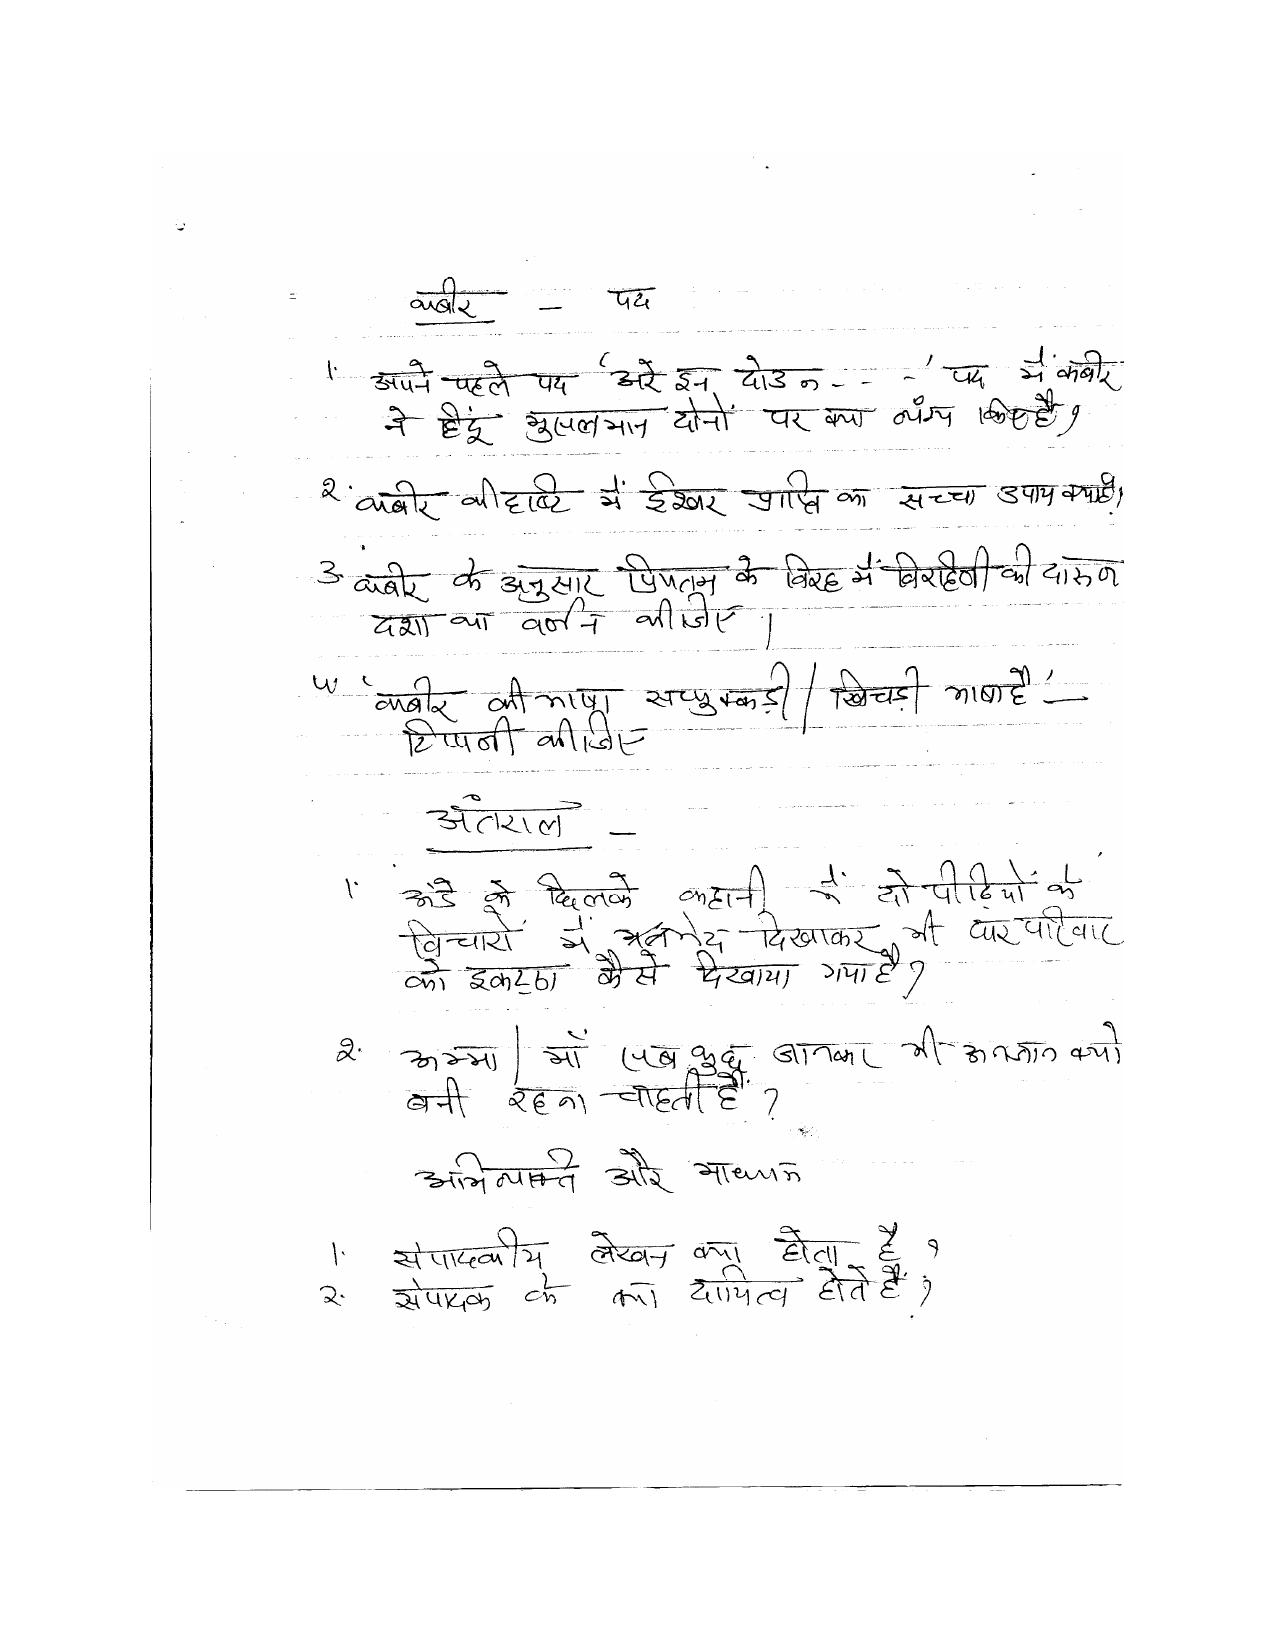 कबीर – पद
1. अपने पहले पद 'अरे इन दोउ न - - -' पद में कबीर
ने हिंदू मुसलमान दोनों पर क्या व्यंग्य किए है?
2. कबीर की दृष्टि में ईश्वर प्राप्ति का सच्चा उपाय क्या है?
3. कबीर के अनुसार प्रियतम के विरह में विरहिणी की दारुण
दशा का वर्णन कीजिए।
4. 'कबीर की भाषा सधुक्कड़ी / खिचड़ी भाषा है' –
टिप्पनी कीजिए
अंतराल –
1. अंडे के छिलके कहानी में दो पीढ़ियों के
विचारों में मतभेद दिखाकर भी घर परिवार
को इकट्ठा कैसे दिखाया गया है?
2. अम्मा / माँ सब कुछ जानकर भी अनजान क्यों
बनी रहना चाहती हैं?
अभिव्यक्ति और माध्यम
1. संपादकीय लेखन क्या होता है?
2. संपादक के क्या दायित्व होते हैं?